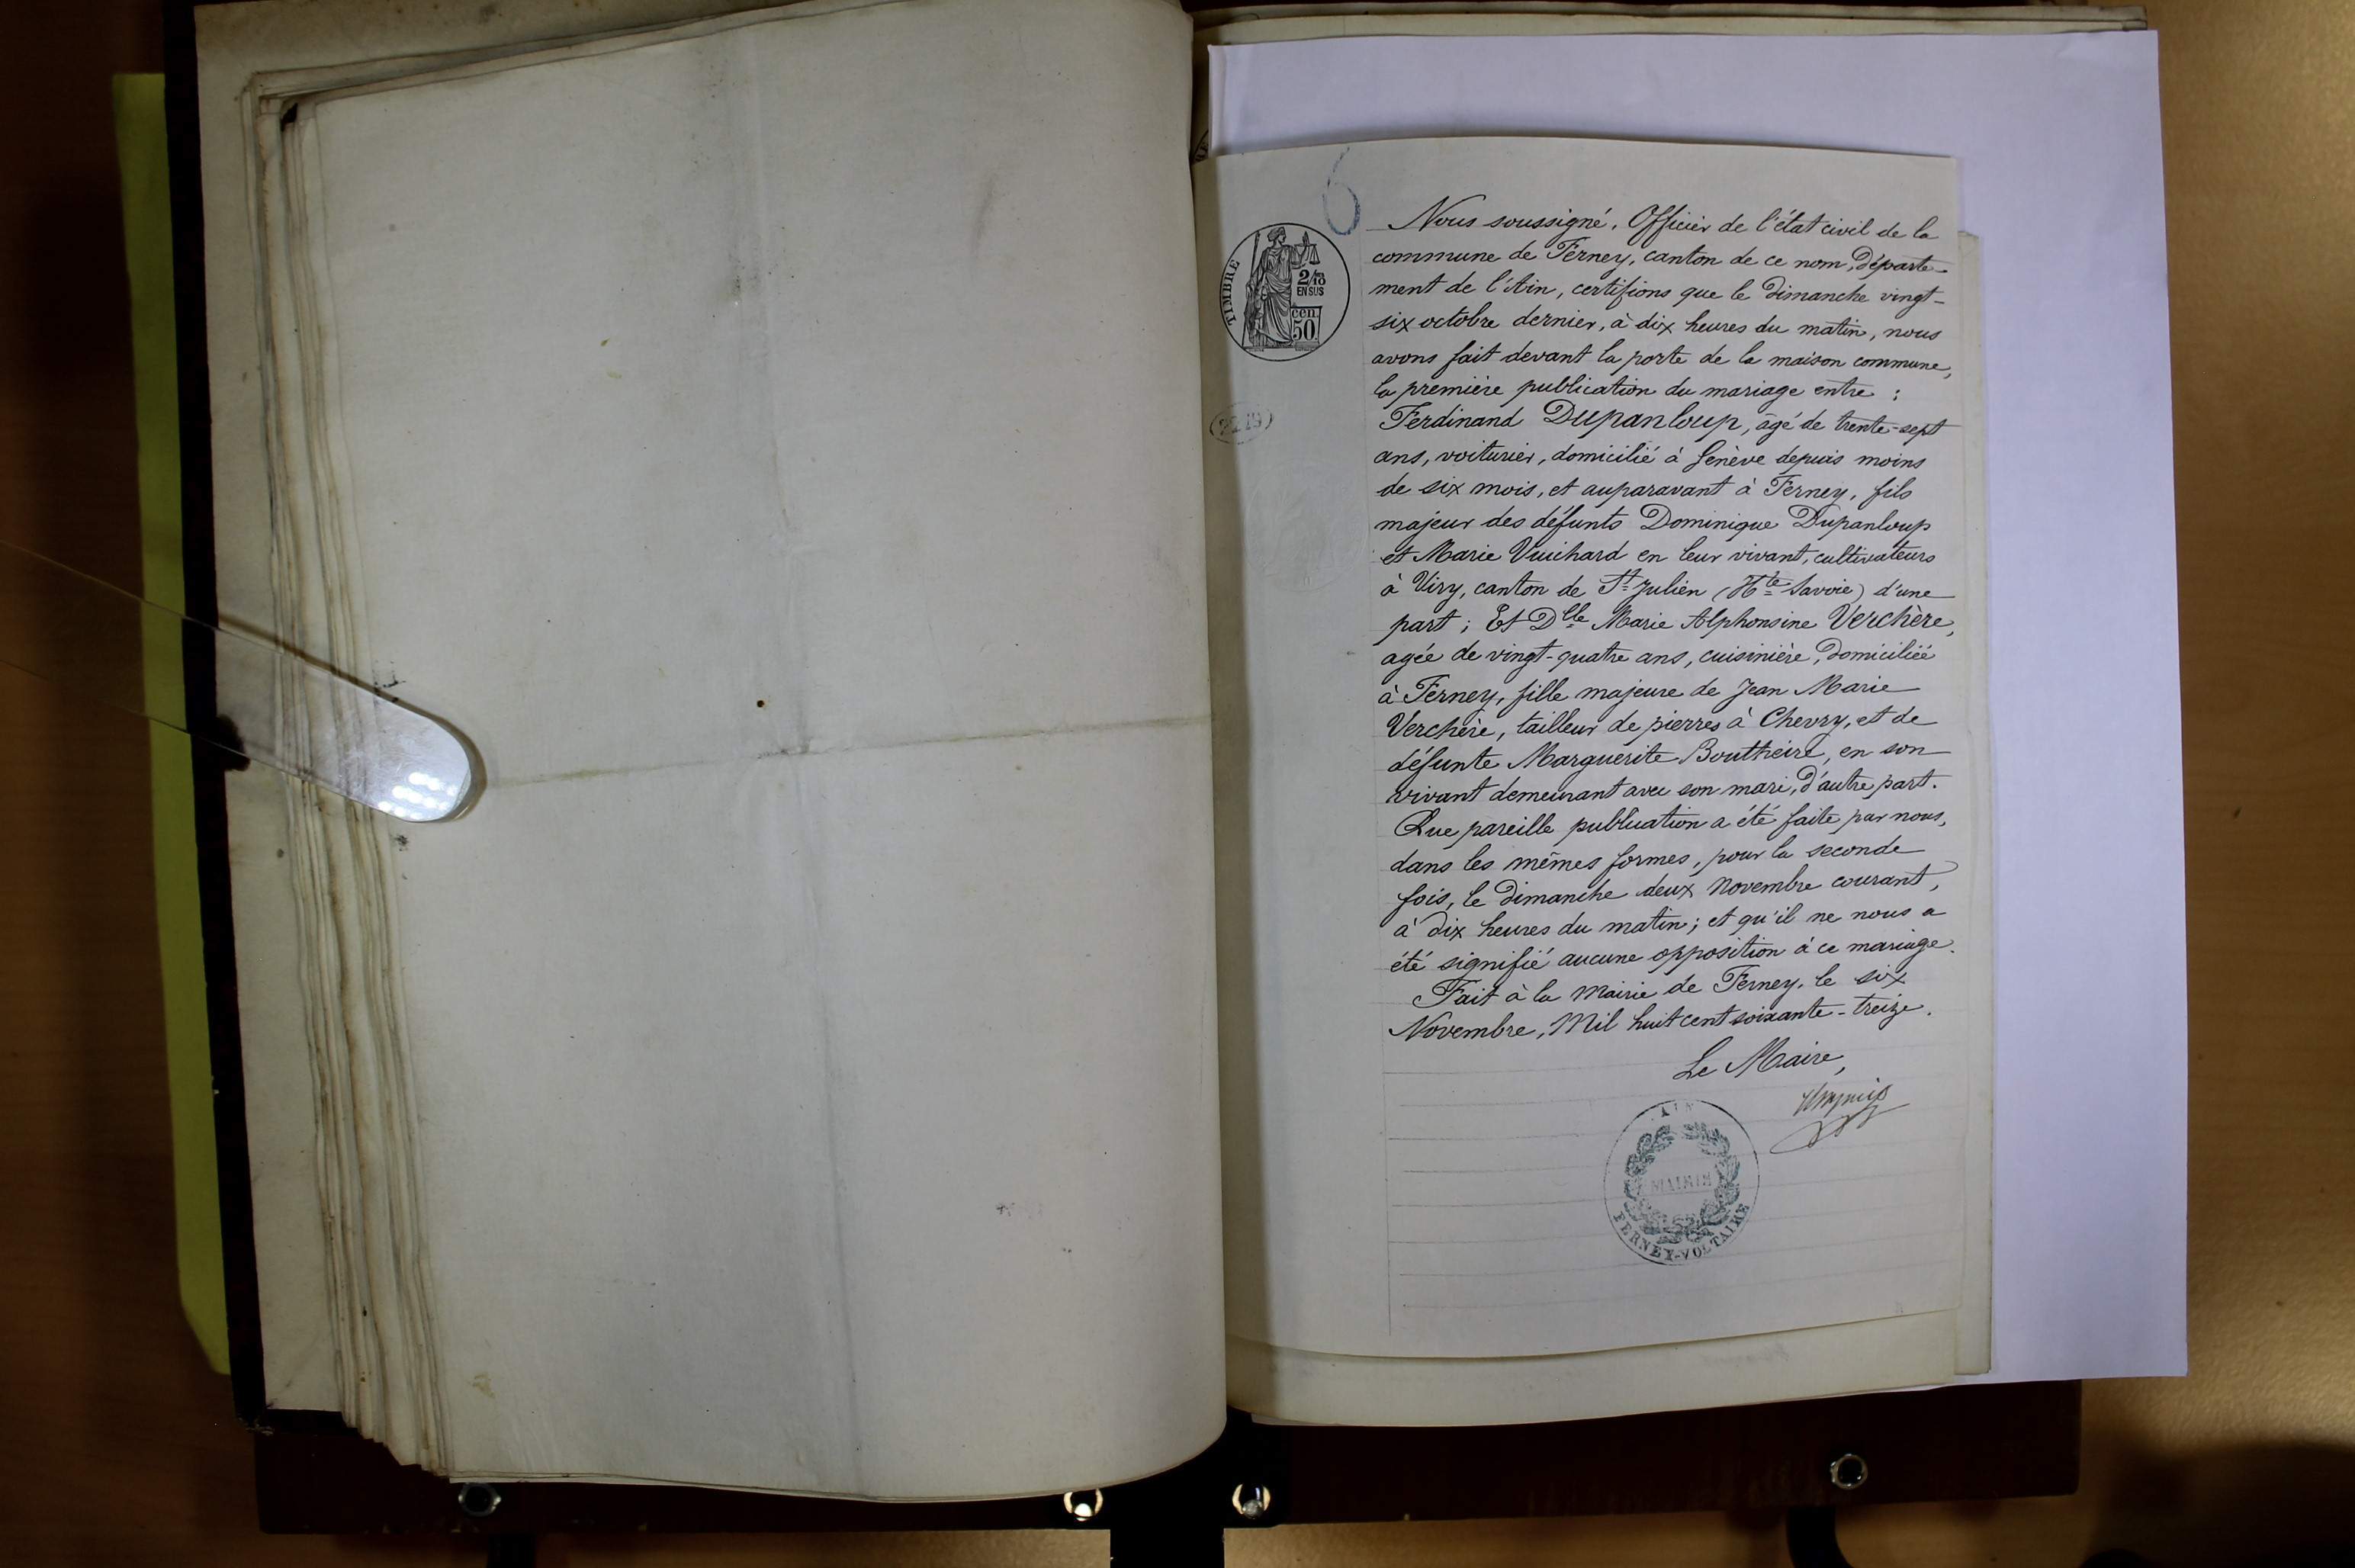 6
TIMBRE
2/10
EN SUS
cen.
50
Nous soussigné, Officier de l'état civil de la
commune de Ferney, canton de ce nom, Départe-
ment de l'Ain, certifions que le Dimanche vingt-
six octobre dernier, à dix heures du matin, nous
avons fait devant la porte de la maison commune,
la première publication du mariage entre :
Ferdinand Dupanloup, âgé de trente-sept
ans, voiturier, domicilié à Genève depuis moins
de six mois, et auparavant à Ferney, fils
majeur des défunts Dominique Dupanloup
et Marie Vuichard en leur vivant, cultivateurs
à Viry, canton de St Julien (Hte Savoie) d'une
part ; Et Dlle Marie Alphonsine Verchère,
agée de vingt-quatre ans, cuisinière, domiciliée
à Ferney, fille majeure de Jean Marie
Verchère, tailleur de pierres à Chevry, et de
défunte Marguerite Boutheire, en son
vivant demeurant avec son mari, d'autre part.
Que pareille publication a été faite par nous,
dans les mêmes formes, pour la seconde
fois, le Dimanche deux Novembre courant,
à dix heures du matin ; et qu'il ne nous a
été signifié aucune opposition à ce mariage.
Fait à la Mairie de Ferney, le six
Novembre, Mil huit cent soixante-treize.
Le Maire,
AIN
MAIRIE
FERNEY-VOLTAIRE